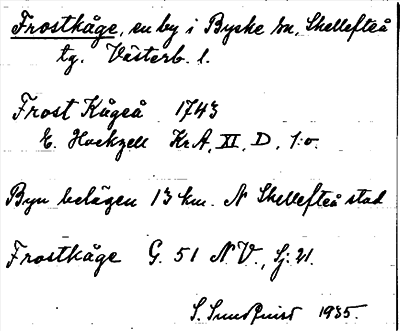 Frostkåge, en by i Byske sn, Skellefteå
tg. Västerb. l.
Frost Kågeå 1743
E. Hackzell KrA, XI, D, 1:o.
Byn belägen 13 km. N Skellefteå stad
Frostkåge G. 51 N V., Sj: 21.
S. Sundqvist 1935.